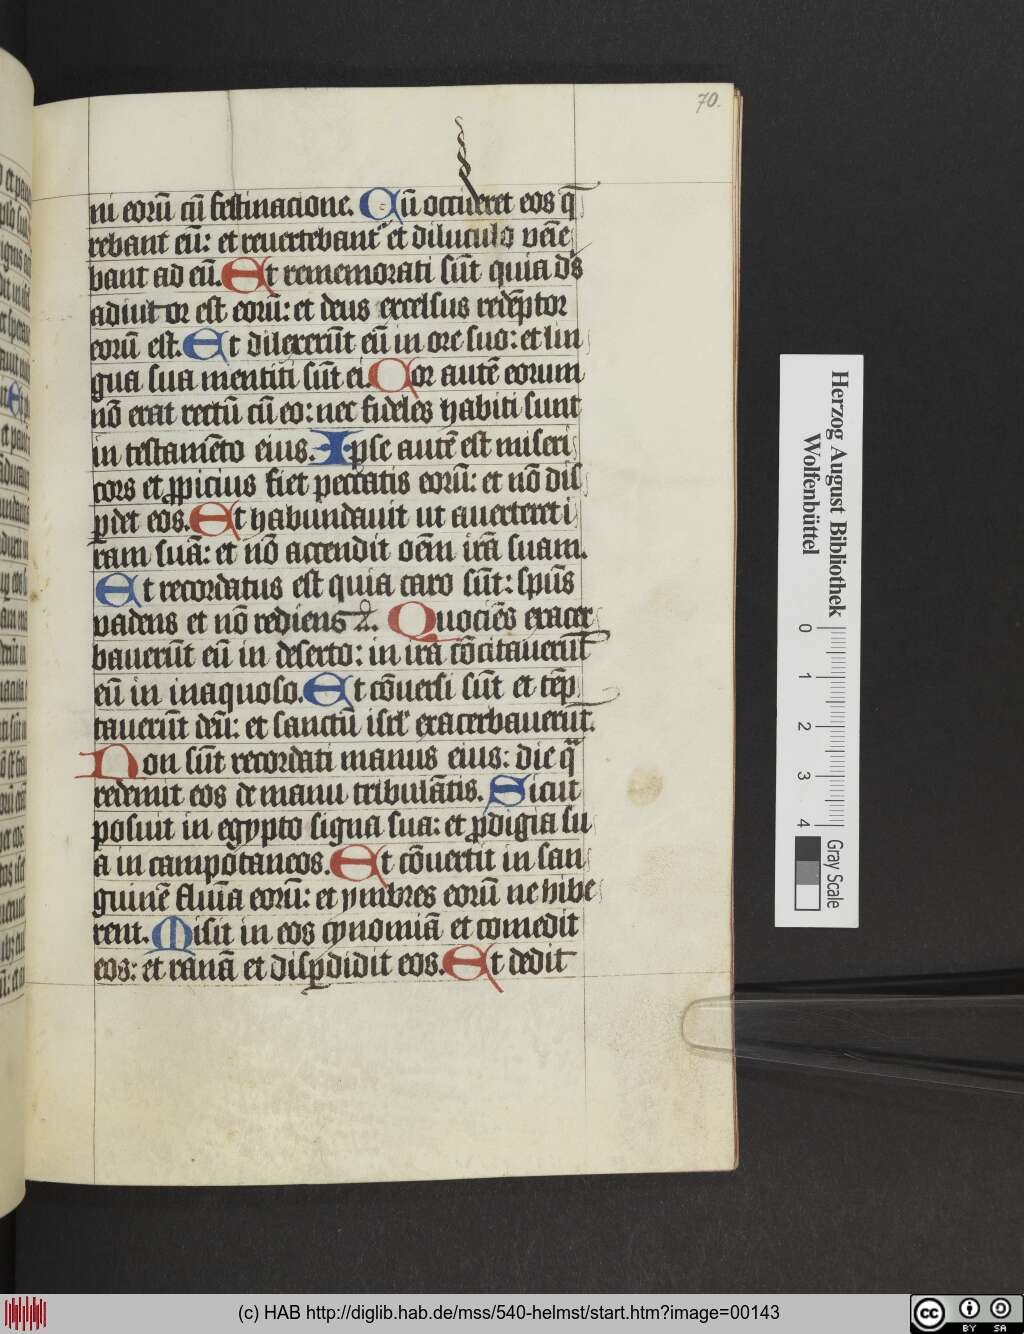 70.
ni eorū cū festinacione. Cū occideret eos q̄
rebant eū: et reuertebant᷑ et diluculo venie
bant ad eū. Et rememorati sūt quia ds̄
adiutor est eorū: et deus excelsus redēptor
eorū est. Et dilexerūt eū in ore suo: et lin
gua sua mentiti sūt ei. Cor autē eorum
nō erat rectū cū eo: nec fideles habiti sunt
in testamēto eius. Ipse autē est miseri
cors et ꝓpicius fiet peccatis eorū: et nō dis
ꝑdet eos. Et habundauit ut auerteret i
ram suā: et nō accendit oēm irā suam.
Et recordatus est quia caro sūt: spūs
vadens et nō rediens. Quociēs exacer
bauerūt eū in deserto: in irā cōcitauerūt
eū in inaquoso. Et cōuersi sūt et tēp
tauerūt deū: et sanctū isrl̄ exacerbauerūt.
Non sūt recordati manus eius: die q̄
redemit eos de manu tribulātis. Sicut
posuit in egypto signa sua: et ꝓdigia su
a in campo taneos. Et cōuertit in san
guinē flumīa eorū: et ymbres eorū ne bibe
rent. Misit in eos cynomiā et comedit
eos: et ranā et disꝑdidit eos. Et dedit
Herzog August Bibliothek
Wolfenbüttel
0 1 2 3 4
Gray Scale
(c) HAB http://diglib.hab.de/mss/540-helmst/start.htm?image=00143
cc BY SA